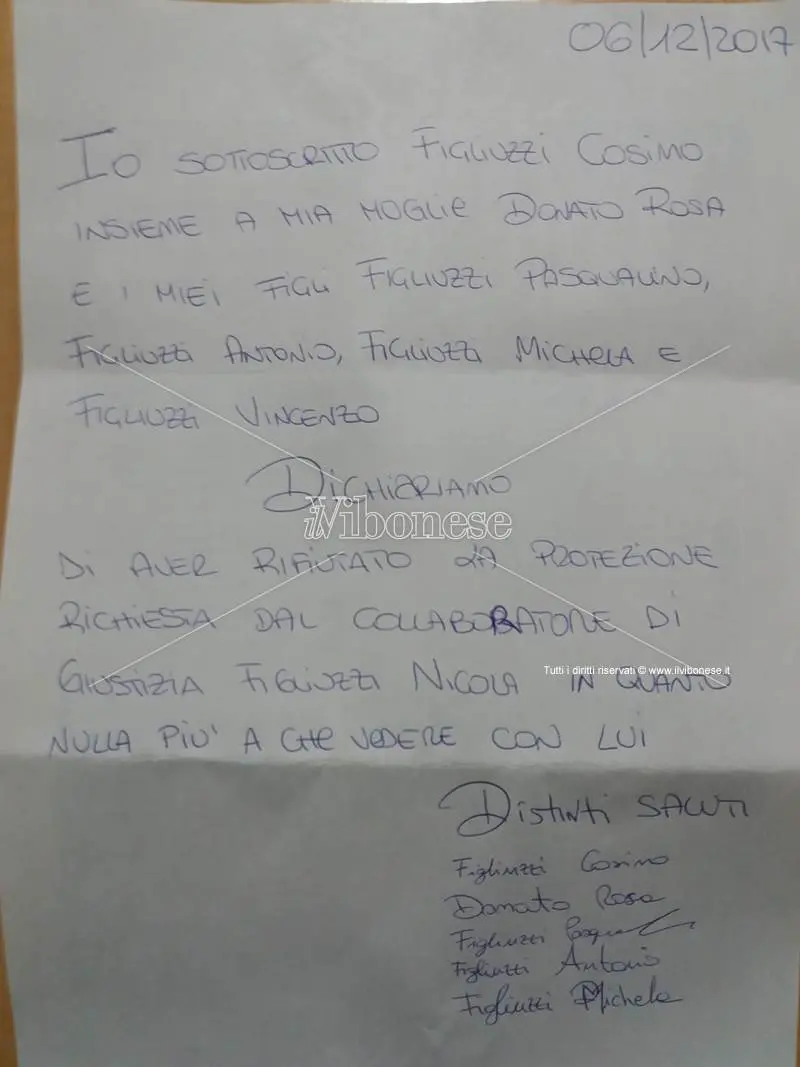 06/12/2017
IO SOTTOSCRITTO FIGLIUZZI COSIMO
INSIEME A MIA MOGLIE DONATO ROSA
E I MIEI FIGLI FIGLIUZZI PASQUALINO,
FIGLIUZZI ANTONIO, FIGLIUZZI MICHELA E
FIGLIUZZI VINCENZO
DICHIARIAMO
ilVibonese
DI AVER RIFIUTATO LA PROTEZIONE
RICHIESTA DAL COLLABORATORE DI
Tutti i diritti riservati © www.ilvibonese.it
GIUSTIZIA FIGLIUZZI NICOLA IN QUANTO
NULLA PIU' A CHE VEDERE CON LUI
DISTINTI SALUTI
Figliuzzi Cosimo
Donato Rosa
Figliuzzi
Figliuzzi Antonio
Figliuzzi Michela